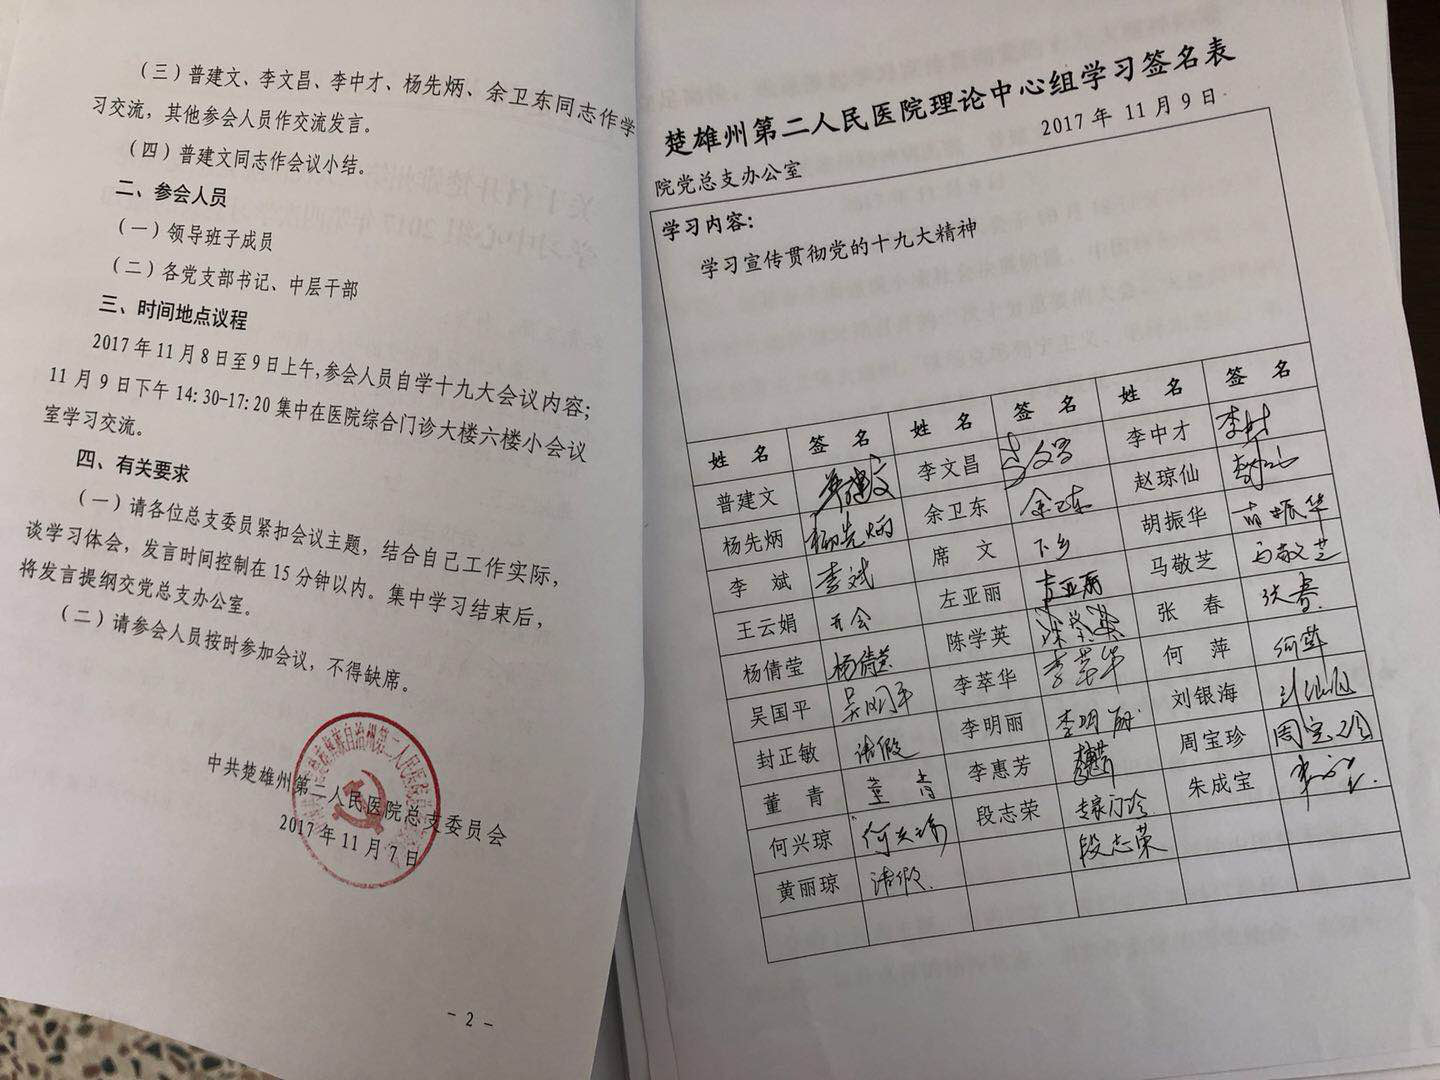 （三）普建文、李文昌、李中才、杨先炳、余卫东同志作学
习交流，其他参会人员作交流发言。
（四）普建文同志作会议小结。
二、参会人员
（一）领导班子成员
（二）各党支部书记、中层干部
三、时间地点议程
2017年11月8日至9日上午,参会人员自学十九大会议内容；
11月9日下午14:30-17:20集中在医院综合门诊大楼六楼小会议
室学习交流。
四、有关要求
（一）请各位总支委员紧扣会议主题，结合自己工作实际，
谈学习体会，发言时间控制在15分钟以内。集中学习结束后，
将发言提纲交党总支办公室。
（二）请参会人员按时参加会议，不得缺席。
中共楚雄州第二人民医院总支委员会
2017年11月7日
- 2 -
楚雄州第二人民医院理论中心组学习签名表
院党总支办公室 2017年11月9日
学习内容：
学习宣传贯彻党的十九大精神
姓 名 签 名 姓 名 签 名 姓 名 签 名
普建文 普建文 李文昌 李文昌 李中才
杨先炳 杨先炳 余卫东 余卫东 赵琼仙
李 斌 李斌 席 文 下乡 胡振华 胡振华
王云娟 开会 左亚丽 左亚丽 马敬芝 马敬芝
杨倩莹 杨倩莹 陈学英 陈学英 张 春 张春
吴国平 吴国平 李萃华 李萃华 何 萍 何萍
封正敏 请假 李明丽 李明丽 刘银海
董 青 董青 李惠芳 周宝珍 周宝珍
何兴琼 何兴琼 段志荣 专家门诊 朱成宝
黄丽琼 请假 段志荣